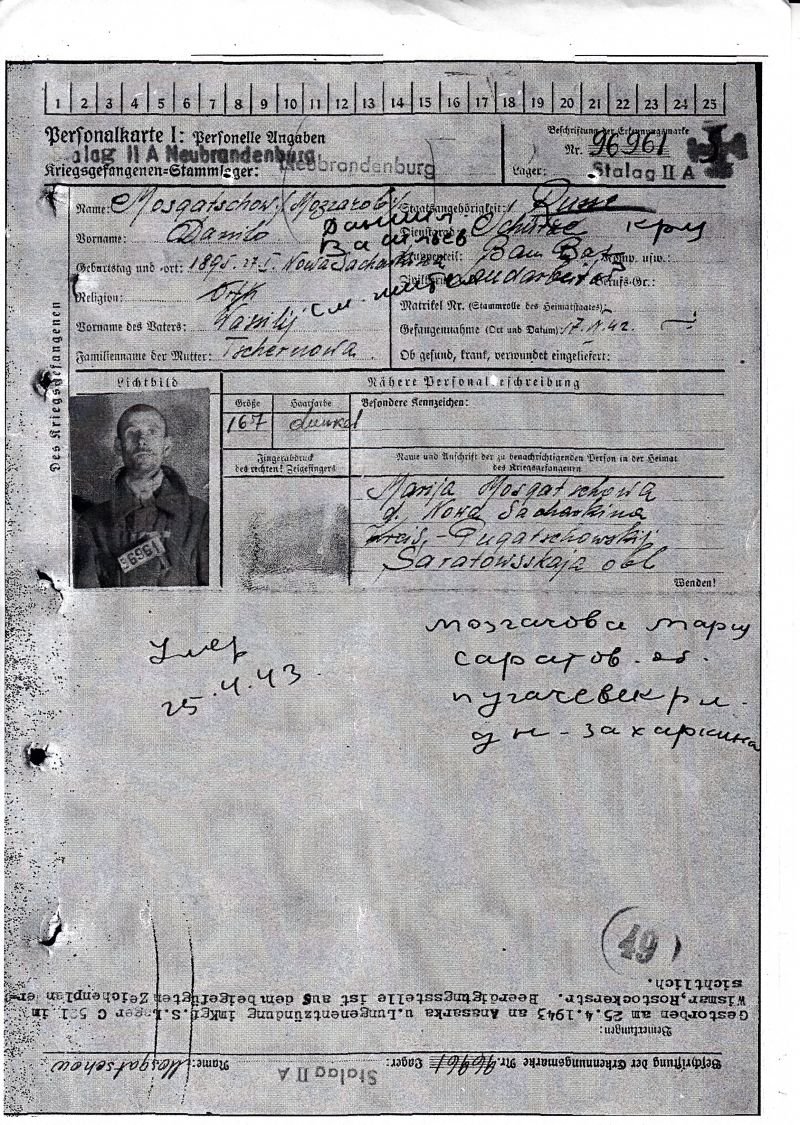 1 2 3 4 5 6 7 8 9 10 11 12 13 14 15 16 17 18 19 20 21 22 23 24 25
Personalkarte I: Personelle Angaben
alag II A Neubrandenburg
Kriegsgefangenen=Stammlager: Neubrandenburg
Beschriftung der Erkennungsmarke
Nr. 96961
Lager: Stalag II A
Des Kriegsgefangenen
Name: Mosgatschow
Vorname: Danilo
Даниил
Васильев
Geburtstag und =ort: 1895. Nowa Sacharkina
Religion:
Vorname des Vaters: Wassilij
Familienname der Mutter: Tschernowa
Staatsangehörigkeit: Russe
Dienstgrad: Schütze
кр-ц
Truppenteil: Bau Bat. Komp. usw.:
Berufs-Gr.:
Matrikel Nr. (Stammrolle des Heimatstaates):
Gefangennahme (Ort und Datum):
Ob gesund, krank, verwundet eingeliefert:
Lichtbild
Nähere Personalbeschreibung
Größe
Haarfarbe
Besondere Kennzeichen:
167
dunkel
Fingerabdruck
des rechten Zeigefingers
Name und Anschrift der zu benachrichtigenden Person in der Heimat
des Kriegsgefangenen
Marija Mosgatschowa
d. Nowa Sacharkina
Kreis- Pugatschowskij
Saratowsskaja obl
Wenden!
96961
Умер
25.4.43
мозгачова
саратов. об.
пугачевск р-н
д н-захаркина
49
Beschriftung der Erkennungsmarke Nr. 96961 Lager: Stalag II A Name: Mosgatschow
Bemerkungen:
Gestorben am 25.4.1943 an Anasarka u. Lungentzündung imKgf.S.Lager C 521 in
Wismar, Rostockerstr. Beerdigungsstelle ist aus dem beigefügten Zeichenplan er-
sichtlich.